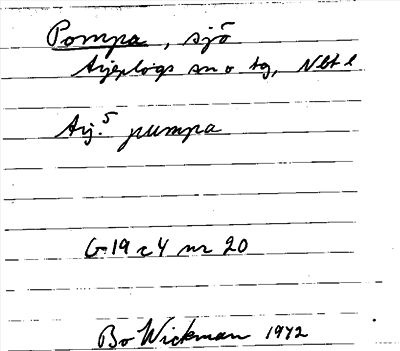 Pompa, sjö
Arjeplogs sn o tg, Nbt l
Arj.⁵ pumpa
G 19 c 4 nr 20
Bo Wickman 1972